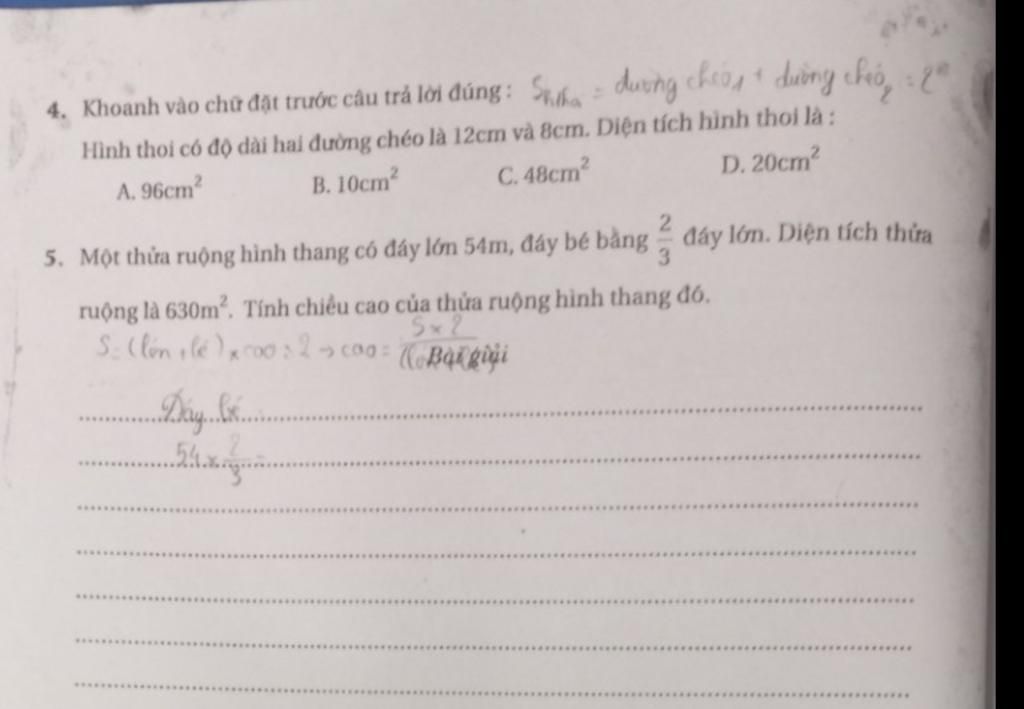 4. Khoanh vào chữ đặt trước câu trả lời đúng : S = đường chéo1 + đường chéo2 : 2
Hình thoi có độ dài hai đường chéo là 12cm và 8cm. Diện tích hình thoi là :
A. 96cm² B. 10cm² C. 48cm² D. 20cm²
5. Một thửa ruộng hình thang có đáy lớn 54m, đáy bé bằng 2/3 đáy lớn. Diện tích thửa
ruộng là 630m². Tính chiều cao của thửa ruộng hình thang đó.
S = (lớn + bé) × cao : 2 → cao = S × 2
Bài giải
Đáy bé
54 × 2/3 =